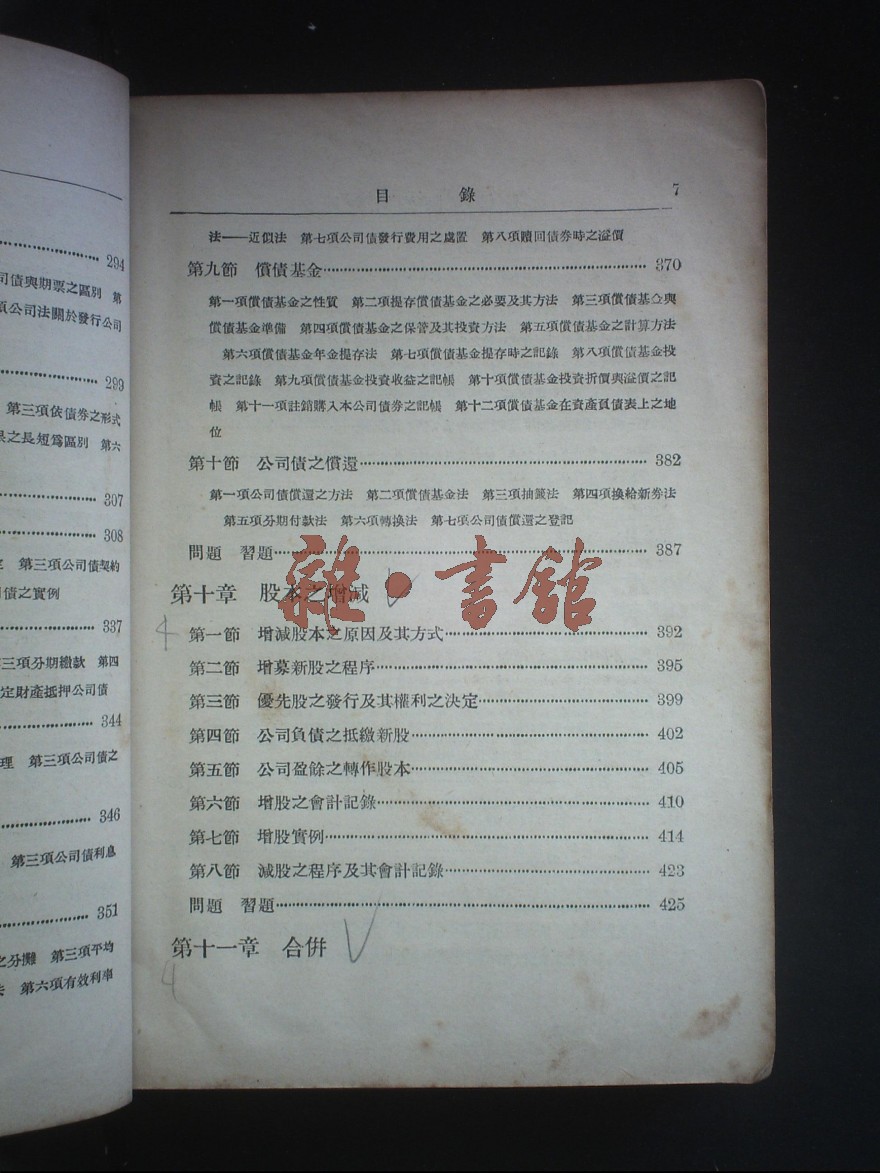 294
司債與期票之區別　第
項公司法關於發行公司
299
第三項依債券之形式
之長短爲區別　第六
307
308
第三項公司債契約
債之實例
337
三項分期繳款　第四
定財產抵押公司債
344
理　第三項公司債之
346
第三項公司債利息
351
之分攤　第三項平均
第六項有效利率
目　錄　7
法——近似法　第七項公司債發行費用之處置　第八項贖回債券時之溢價
第九節　償債基金……370
第一項償債基金之性質　第二項提存償債基金之必要及其方法　第三項償債基金與
償債基金準備　第四項償債基金之保管及其投資方法　第五項償債基金之計算方法
第六項償債基金年金提存法　第七項償債基金提存時之記錄　第八項償債基金投
資之記錄　第九項償債基金投資收益之記帳　第十項償債基金投資折價與溢價之記
帳　第十一項註銷購入本公司債券之記帳　第十二項償債基金在資產負債表上之地
位
第十節　公司債之償還……382
第一項公司債償還之方法　第二項償債基金法　第三項抽籤法　第四項換給新券法
第五項分期付款法　第六項轉換法　第七項公司債償還之登記
問題　習題……387
雜·書館
第十章　股本之增減
4
第一節　增減股本之原因及其方式……392
第二節　增募新股之程序……395
第三節　優先股之發行及其權利之決定……399
第四節　公司負債之抵繳新股……402
第五節　公司盈餘之轉作股本……405
第六節　增股之會計記錄……410
第七節　增股實例……414
第八節　減股之程序及其會計記錄……423
問題　習題……425
第十一章　合併
4